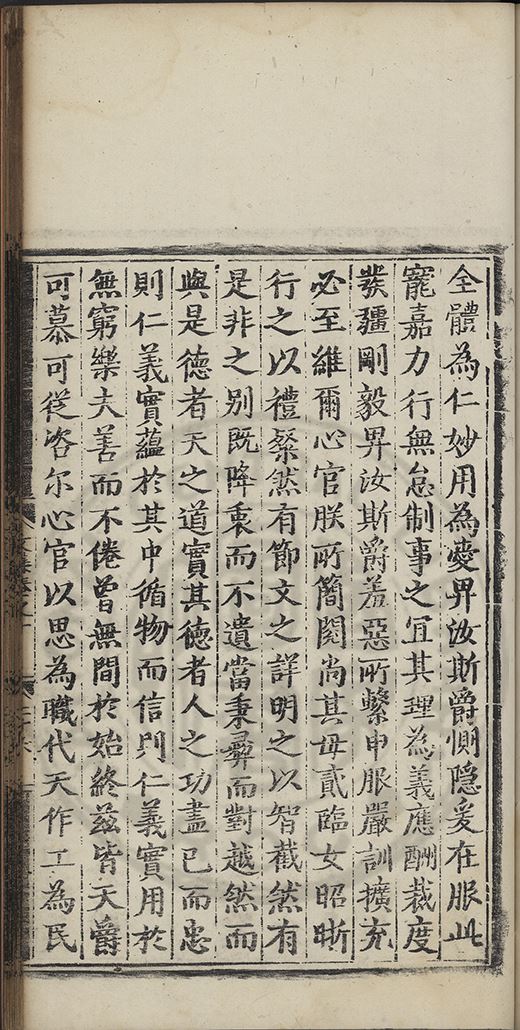 全體為仁妙用為愛畀汝斯爵惻隱爰在服此
寵嘉力行無怠制事之宜其理為義應酬裁度
發彊剛毅畀汝斯爵羞惡所繫申服嚴訓擴充
必至維爾心官朕所簡閱尚其毋貳臨女昭晣
行之以禮粲然有節文之詳明之以智截然有
是非之別既降衷而不遺當秉彛而對越然而
與是德者天之道實其德者人之功盡已而忠
則仁義實蘊於其中循物而信則仁義實用於
無窮樂夫善而不倦曾無間於始終玆皆天爵
可慕可從咨尔心官以思為職代天作工為民